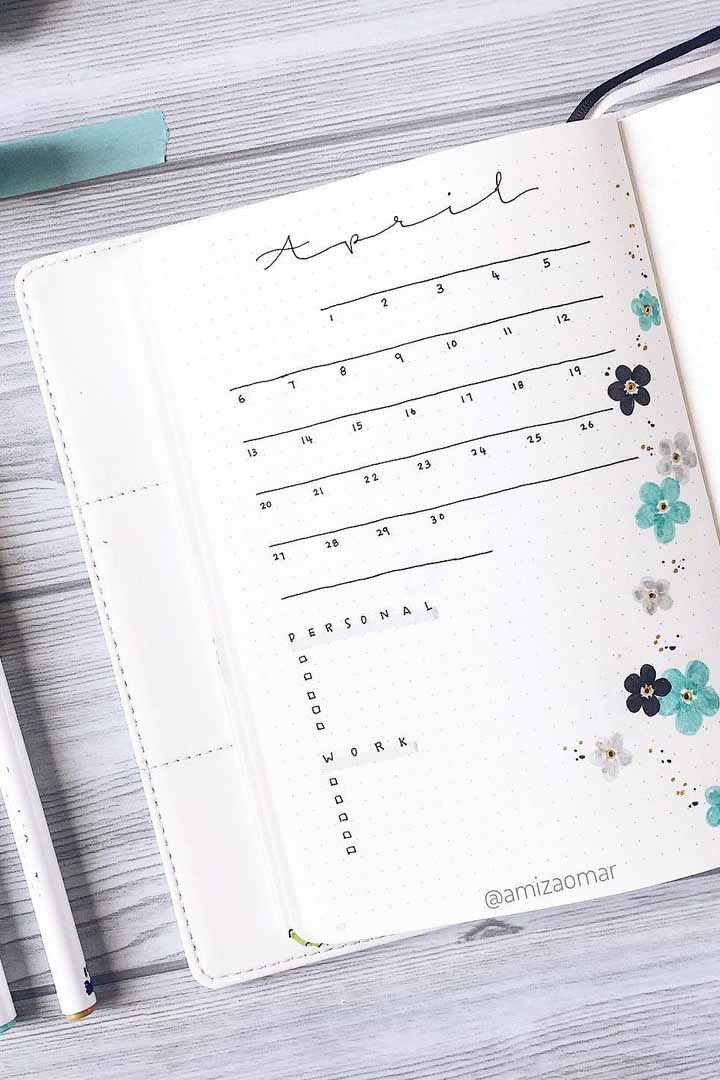 April
1 2 3 4 5
6 7 8 9 10 11 12
13 14 15 16 17 18 19
20 21 22 23 24 25 26
27 28 29 30
PERSONAL
WORK
@amizaomar